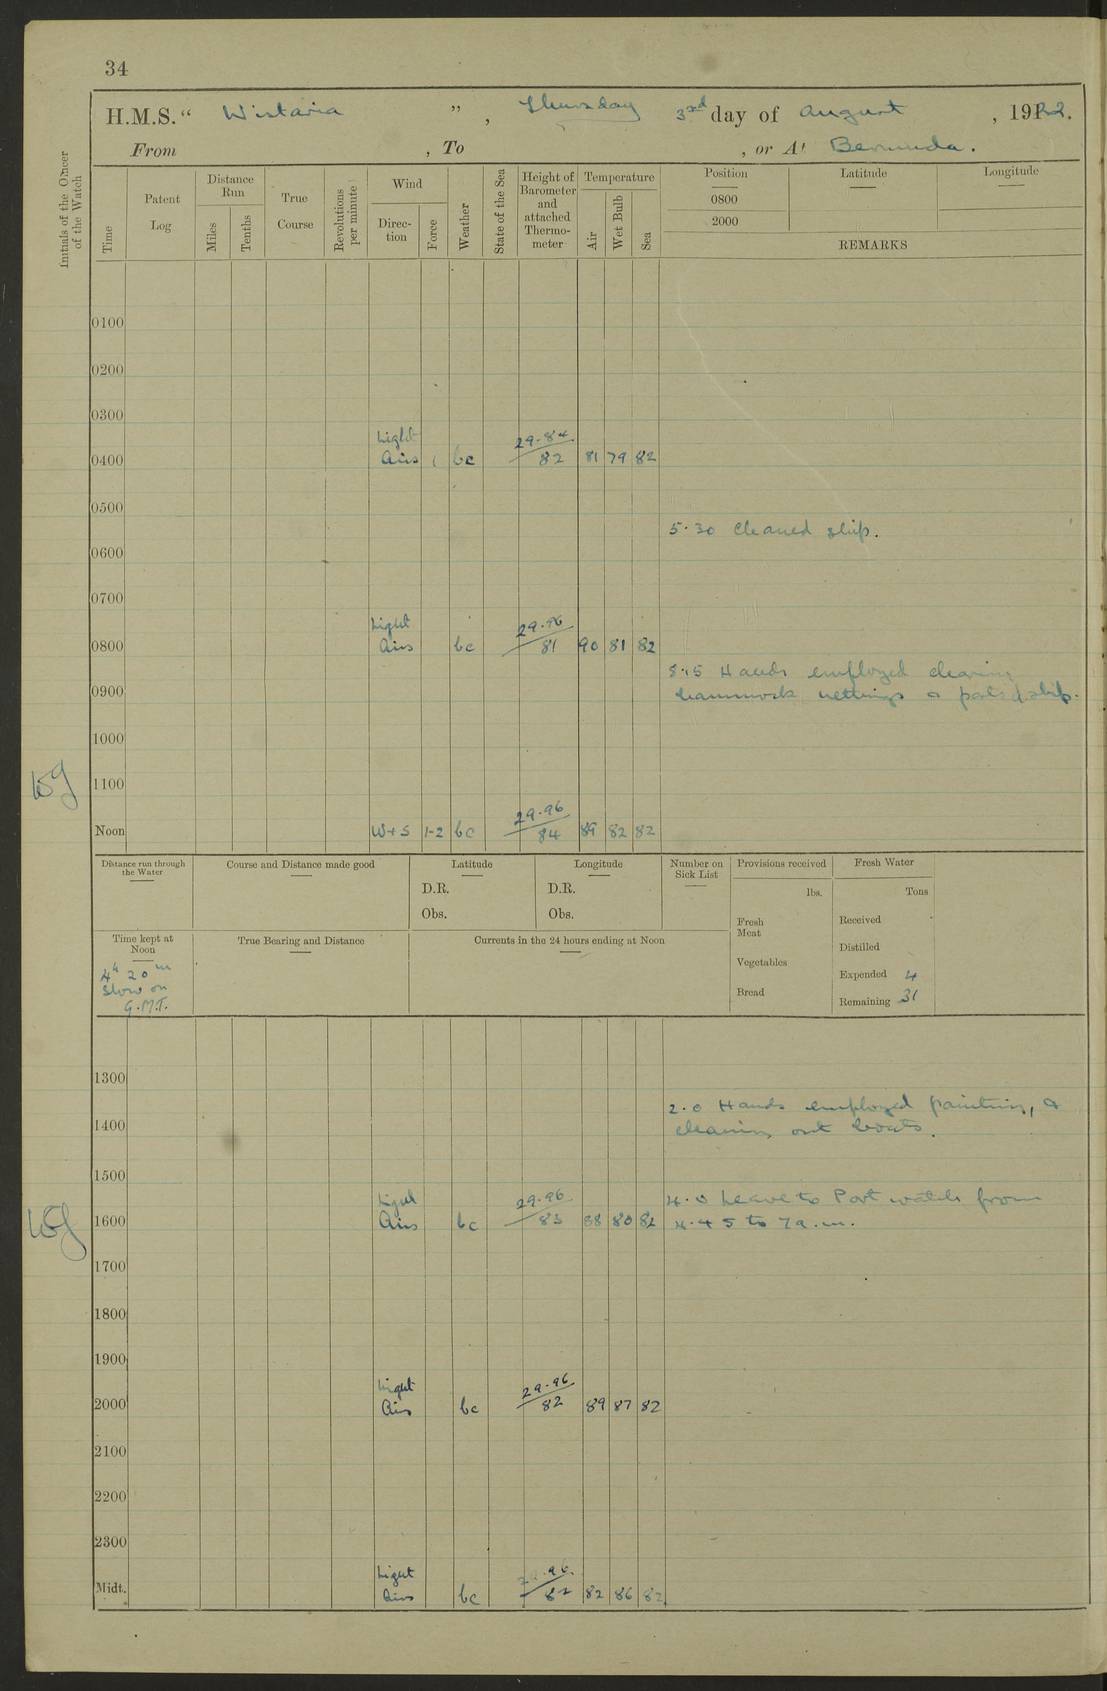 34
H.M.S. “ Wistaria ” , Thursday 3rd day of August , 1922.
From , To , or At Bermuda.
Initials of the Officer of the Watch
Time
Patent Log
Distance Run
Miles
Tenths
True Course
Revolutions per minute
Wind
Direction
Force
Weather
State of the Sea
Height of Barometer and attached Thermometer
Temperature
Air
Wet Bulb
Sea
Position Latitude Longitude
0800
2000
REMARKS
0100
0200
0300
Light 29.84
0400 Airs 1 bc 82 81 79 82
0500
5.30 Cleaned ship.
0600
0700
Light 29.96
0800 Airs bc 81 90 81 82
8.15 Hands employed cleaning
0900 hammock nettings & parts of ship.
1000
1100
29.96
Noon W+S 1-2 bc 84 89 82 82
Distance run through the Water
Course and Distance made good
Latitude
D.R.
Obs.
Longitude
D.R.
Obs.
Number on Sick List
Provisions received
lbs.
Fresh Meat
Vegetables
Bread
Fresh Water
Tons
Received
Distilled
Expended 4
Remaining 31
Time kept at Noon
4h 20m
slow on
G.M.T.
True Bearing and Distance
Currents in the 24 hours ending at Noon
1300
2.0 Hands employed painting, &
1400 cleaning out boats.
1500
Light 29.96 4.0 Leave to Port watch from
1600 Airs bc 83 88 80 82 4.45 to 7 a.m.
1700
1800
1900
Light 29.96
2000 Airs bc 82 89 87 82
2100
2200
2300
Light 29.96
Midt. Airs bc 82 82 86 82